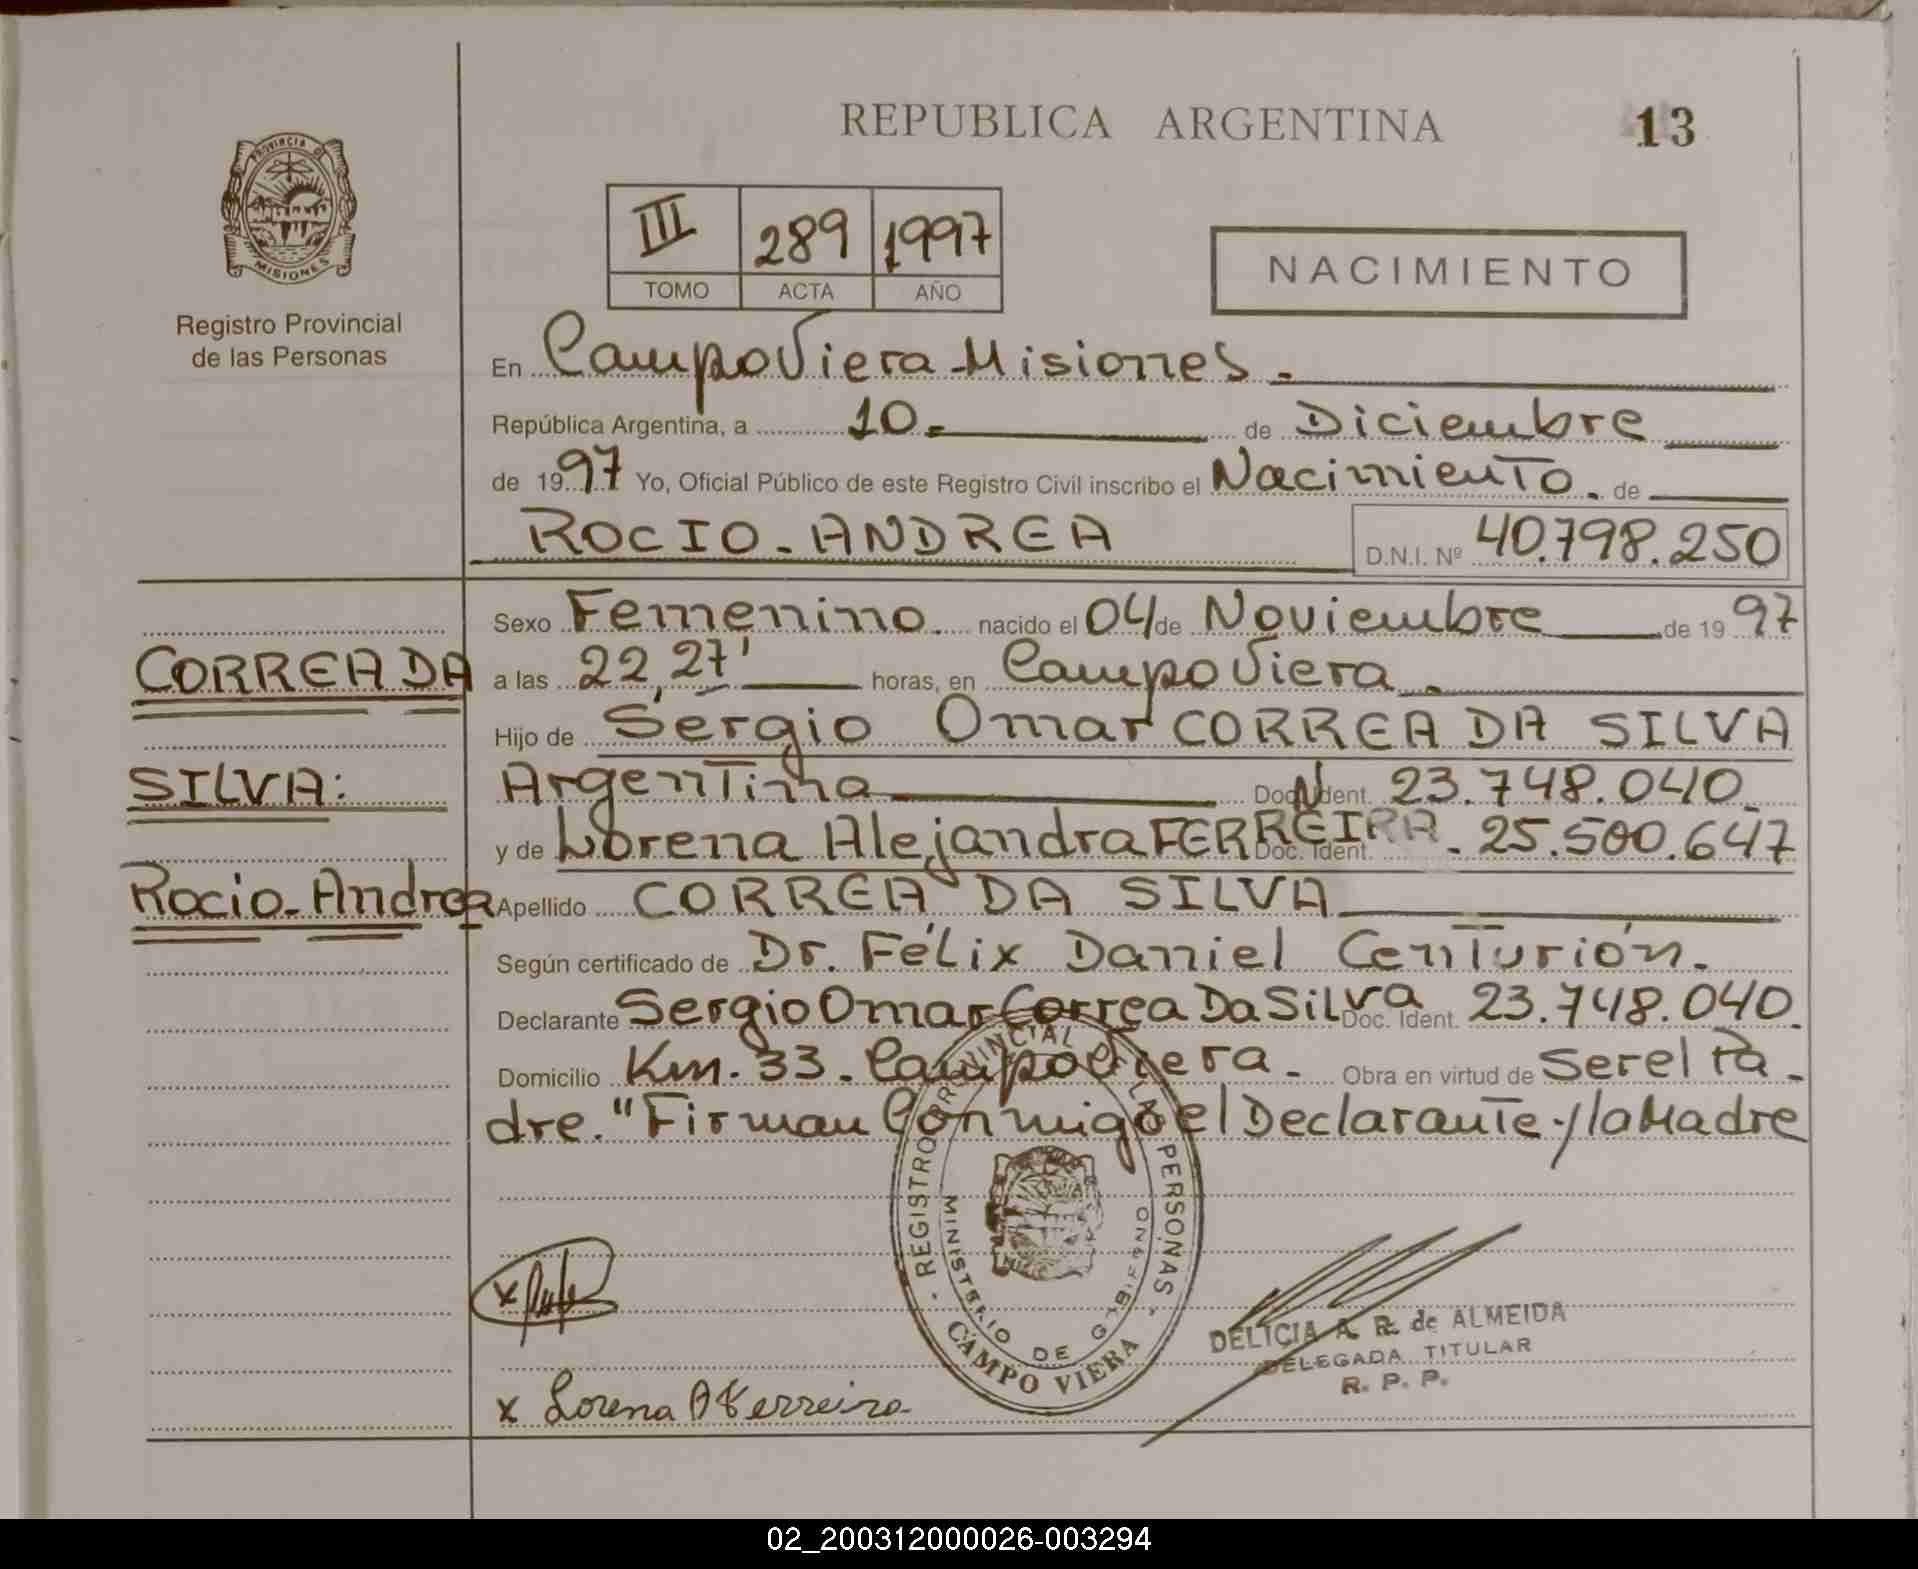 REPUBLICA ARGENTINA
13
PROVINCIA DE
MISIONES
Registro Provincial
de las Personas
III 289 1997
TOMO ACTA AÑO
NACIMIENTO
En Campo Viera - Misiones.
República Argentina, a 10. de Diciembre
de 1997 Yo, Oficial Público de este Registro Civil inscribo el Nacimiento. de
ROCIO - ANDREA D.N.I. Nº 40.798.250
Sexo Femenino. nacido el 04 de Noviembre de 1997
CORREA DA
a las 22,27' horas, en Campo Viera.
Hijo de Sergio Omar CORREA DA SILVA
SILVA:
Argentina Doc. Ident. 23.748.040.
y de Lorena Alejandra FERREIRA Doc. Ident. - 25.500.647
Rocio - Andrea
Apellido CORREA DA SILVA
Según certificado de Dr. Félix Daniel Centurión.
Declarante Sergio Omar Correa Da Silva Doc. Ident. 23.748.040.
Domicilio Km. 33. Campo Viera - Obra en virtud de Ser el Pa -
dre. "Firman Conmigo el Declarante y la Madre
REGISTRO PROVINCIAL DE LAS PERSONAS
MINISTERIO DE GOBIERNO
CAMPO VIERA
x
DELICIA A. R. de ALMEIDA
DELEGADA TITULAR
R. P. P.
x Lorena A Ferreira
02_200312000026-003294